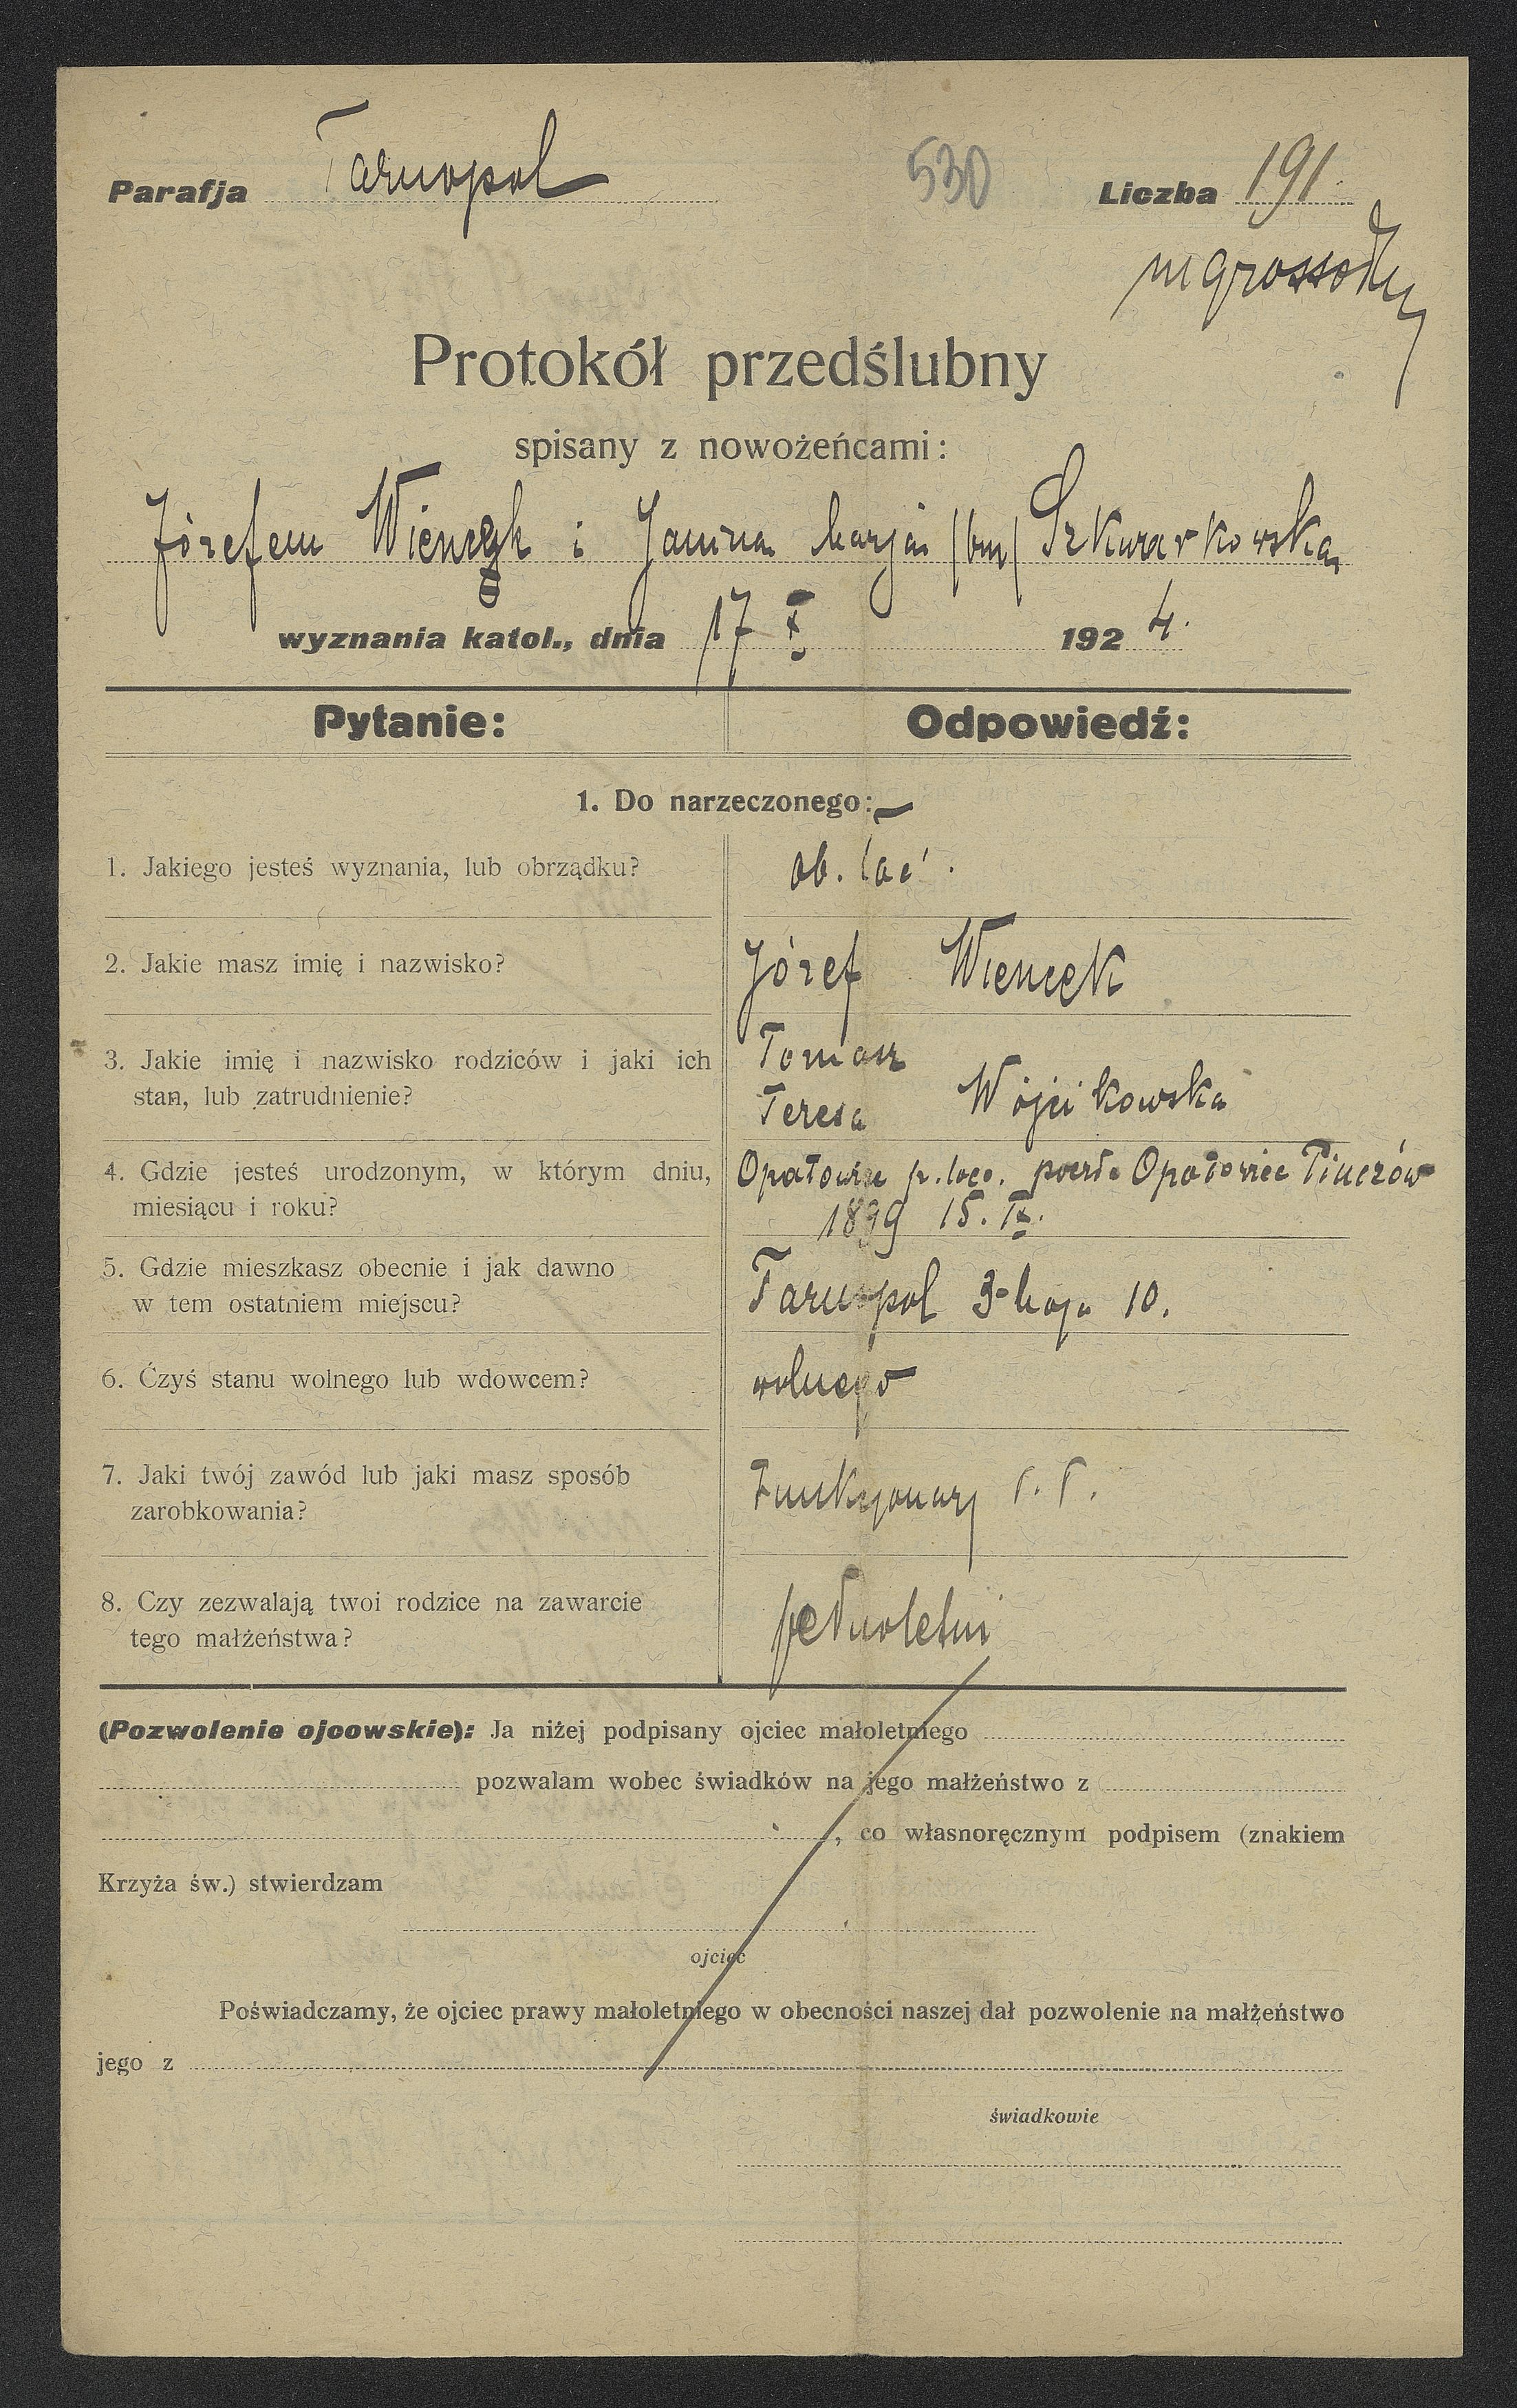 Parafja Tarnopol 530 Liczba 191.
ingrossow
Protokół przedślubny
spisany z nowożeńcami:
Józefem Wiencek i Janina Marja (bm) Szkwarkowska
wyznania katol., dnia 17 X 1924.
Pytanie: Odpowiedź:
1. Do narzeczonego:
1. Jakiego jesteś wyznania, lub obrządku? ob. łać.
2. Jakie masz imię i nazwisko? Józef Wiencek
3. Jakie imię i nazwisko rodziców i jaki ich Tomasz
stan, lub zatrudnienie? Teresa Wójcikowska
4. Gdzie jesteś urodzonym, w którym dniu, Opatowiec p. loco. poczta Opatowiec Pinczów
miesiącu i roku? 1899 15. IX.
5. Gdzie mieszkasz obecnie i jak dawno
w tem ostatniem miejscu? Tarnopol 3-Maja 10.
6. Czyś stanu wolnego lub wdowcem? wolnego
7. Jaki twój zawód lub jaki masz sposób
zarobkowania? Funkcyonarj P. P.
8. Czy zezwalają twoi rodzice na zawarcie
tego małżeństwa? pełnoletni
(Pozwolenie ojcowskie): Ja niżej podpisany ojciec małoletniego
pozwalam wobec świadków na jego małżeństwo z
, co własnoręcznym podpisem (znakiem
Krzyża św.) stwierdzam
ojciec
Poświadczamy, że ojciec prawy małoletniego w obecności naszej dał pozwolenie na małżeństwo
jego z
świadkowie